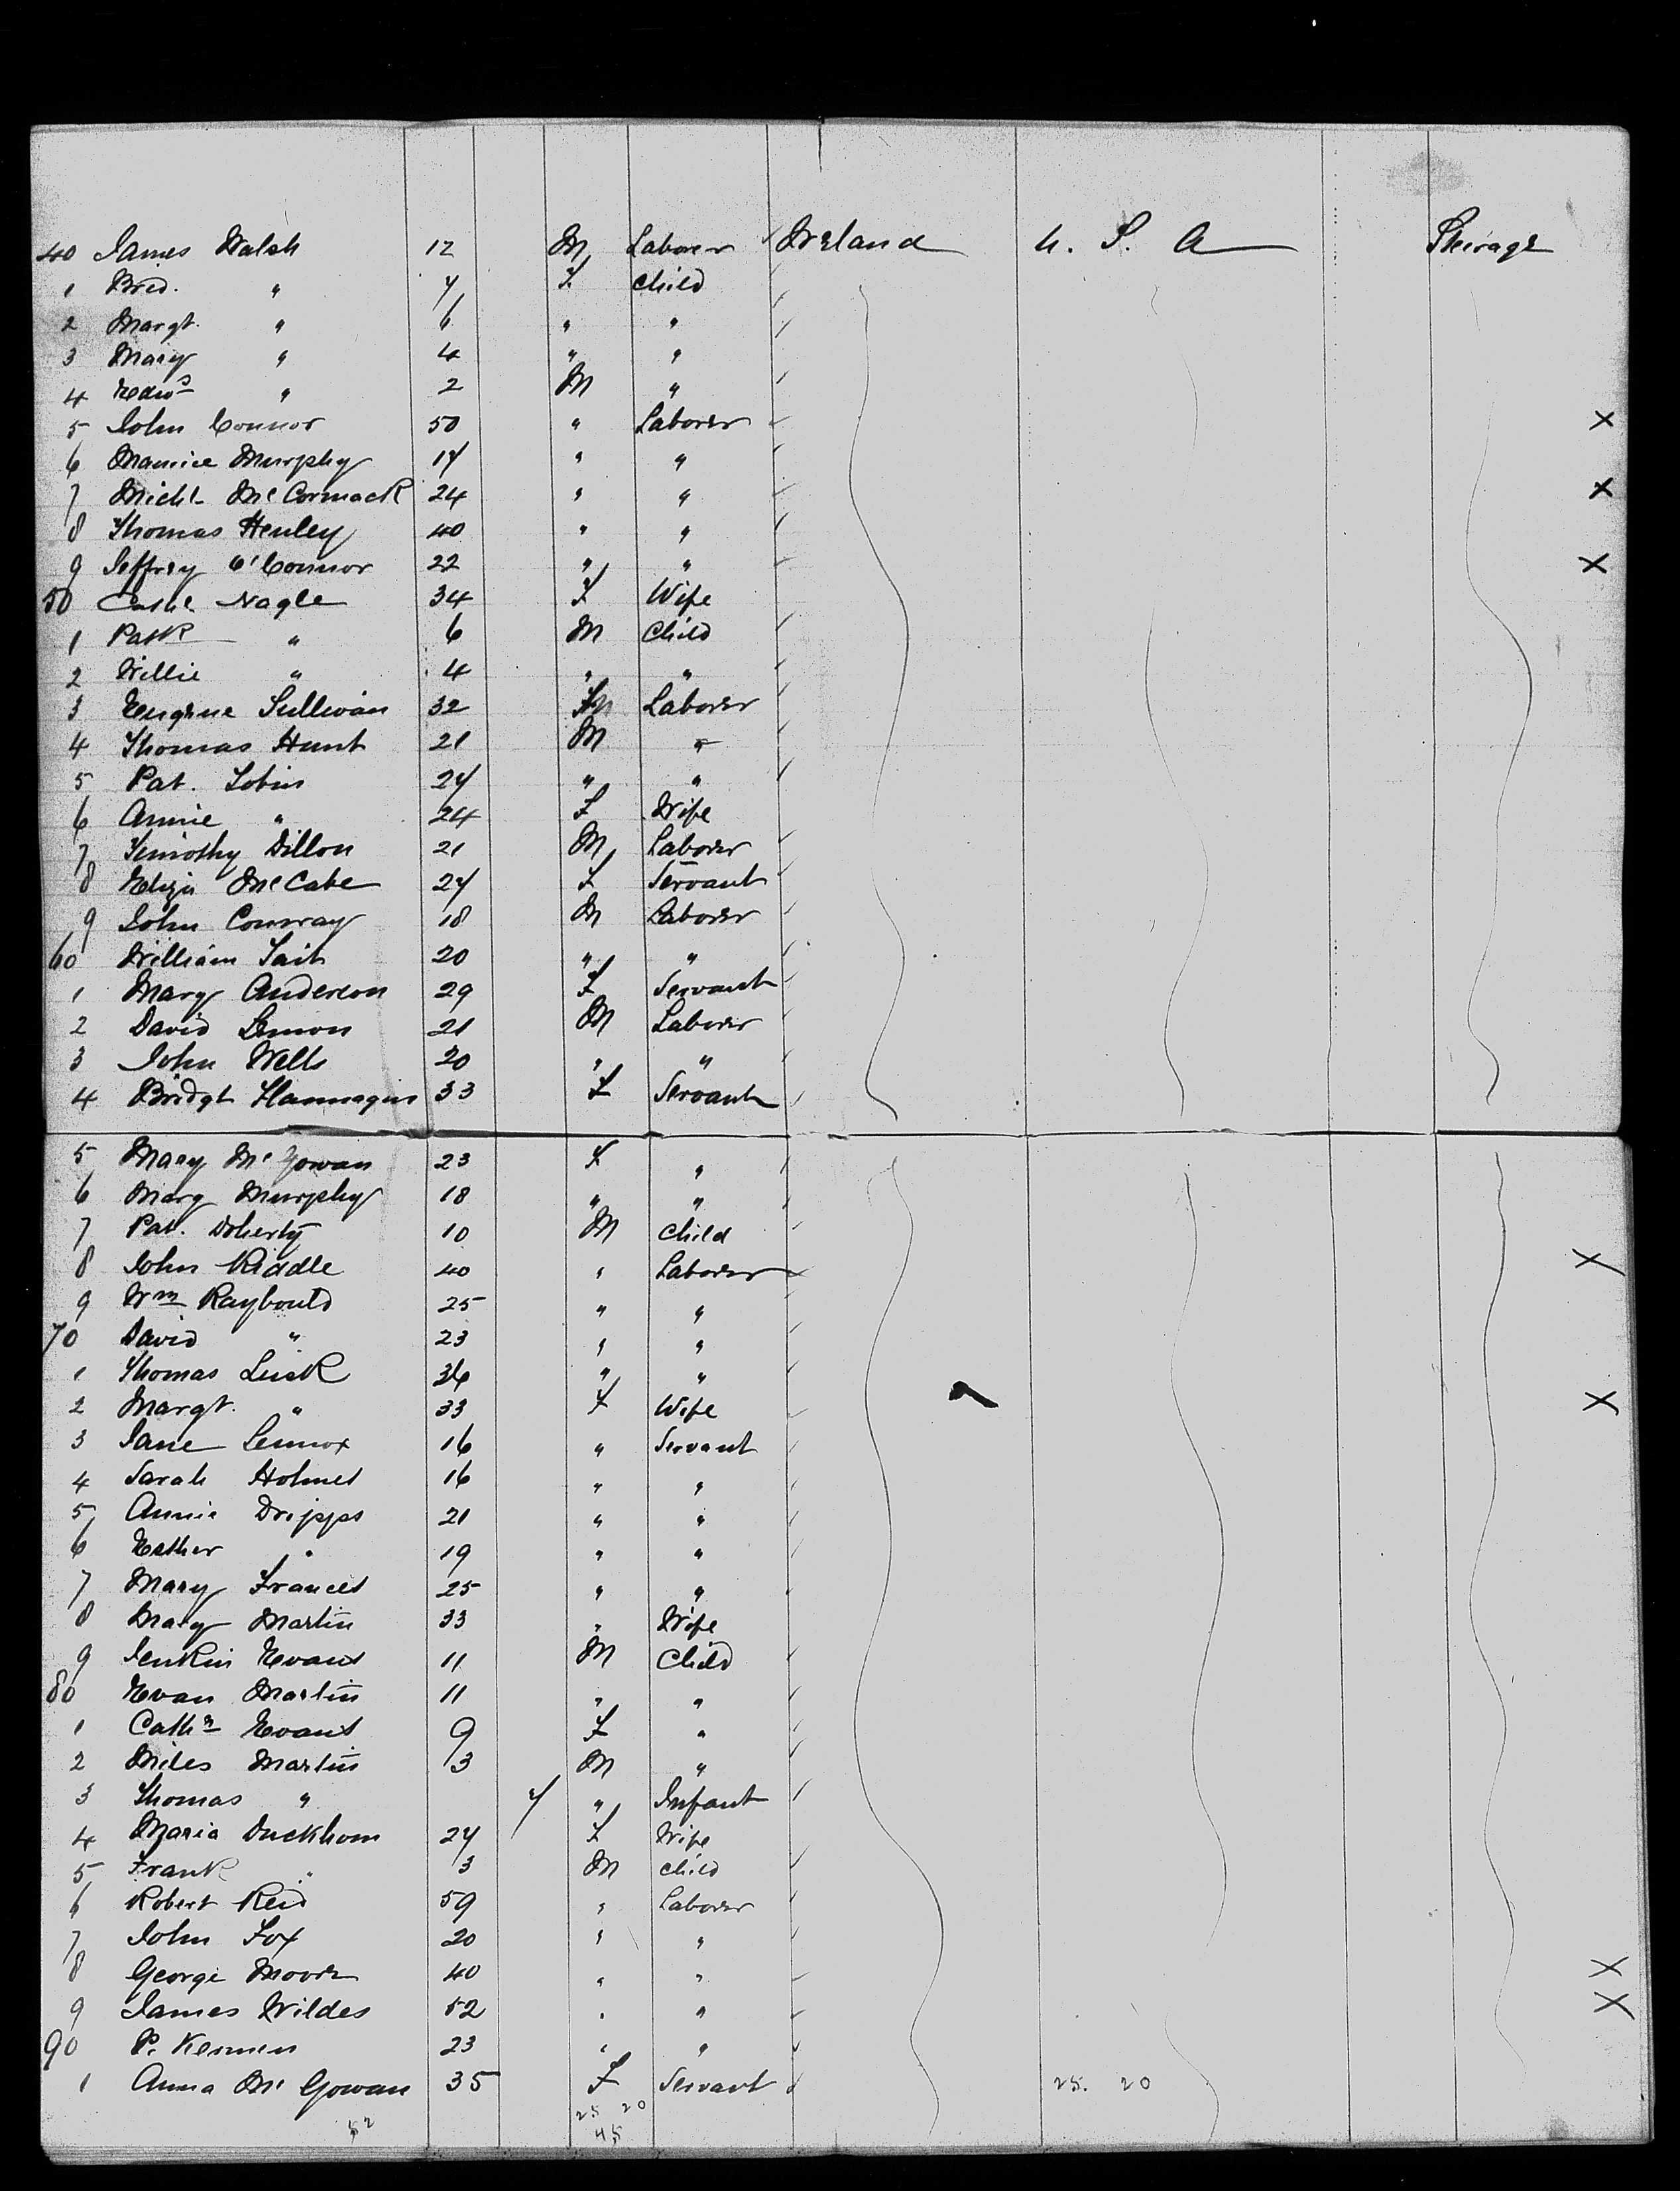 40 James Walsh 12 M Laborer Ireland U. S. A Steerage
1 Brid. " 7 F Child
2 Margt. " 6 " "
3 Mary " 4 " "
4 Edwd " 2 M "
5 John Connor 50 " Laborer X
6 Maurice Murphy 17 " "
7 Michl McCormack 24 " " X
8 Thomas Henley 40 " "
9 Jeffrey O'Connor 22 " " X
50 Cathe Nagle 34 F Wife
1 Patk " 6 M Child
2 Willie " 4 " "
3 Eugene Sullivan 32 M Laborer
4 Thomas Hunt 21 M "
5 Pat. Tobin 27 " "
6 Annie " 24 F Wife
7 Timothy Dillon 21 M Laborer
8 Eliza McCabe 27 F Servant
9 John Conway 18 M Laborer
60 William Tait 20 " "
1 Mary Anderson 29 F Servant
2 David Lemon 21 M Laborer
3 John Wells 20 " "
4 Bridgt Hannagin 33 F Servant
5 Mary McGowan 23 F "
6 Mary Murphy 18 " "
7 Pat. Doherty 10 M Child
8 John Riddle 40 " Laborer X
9 Wm Raybould 25 " "
70 David " 23 " "
1 Thomas Lusk 36 " "
2 Margt. " 33 F Wife X
3 Jane Lennox 16 " Servant
4 Sarah Holmes 16 " "
5 Annie Dripps 21 " "
6 Esther " 19 " "
7 Mary Frances 25 " "
8 Mary Martin 33 " Wife
9 Jenkin Evans 11 M Child
80 Evan Martin 11 " "
1 Cathn Evans 9 F "
2 Miles Martin 3 M "
3 Thomas " 7 " Infant
4 Maria Duckhom 27 F Wife
5 Frank " 3 M Child
6 Robert Reid 59 " Laborer
7 John Fox 20 " "
8 George Moore 40 " " X
9 James Wildes 52 " " X
90 P. Kernan 23 " "
1 Anna McGowan 35 F Servant 25. 20
25 20
52 45